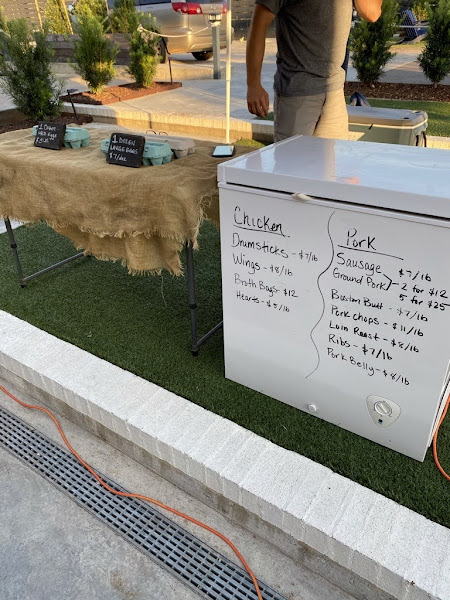 1 DOZEN
LARGE EGGS
$7/doz
Chicken
Drumsticks - $7/lb
Wings - $8/lb
Broth Bags - $12
Hearts - $5/lb
Pork
Sausage $7/lb
Ground Pork 2 for $12
5 for $25
Boston Butt - $7/lb
Pork Chops - $11/lb
Loin Roast - $8/lb
Ribs - $7/lb
Pork Belly - $8/lb